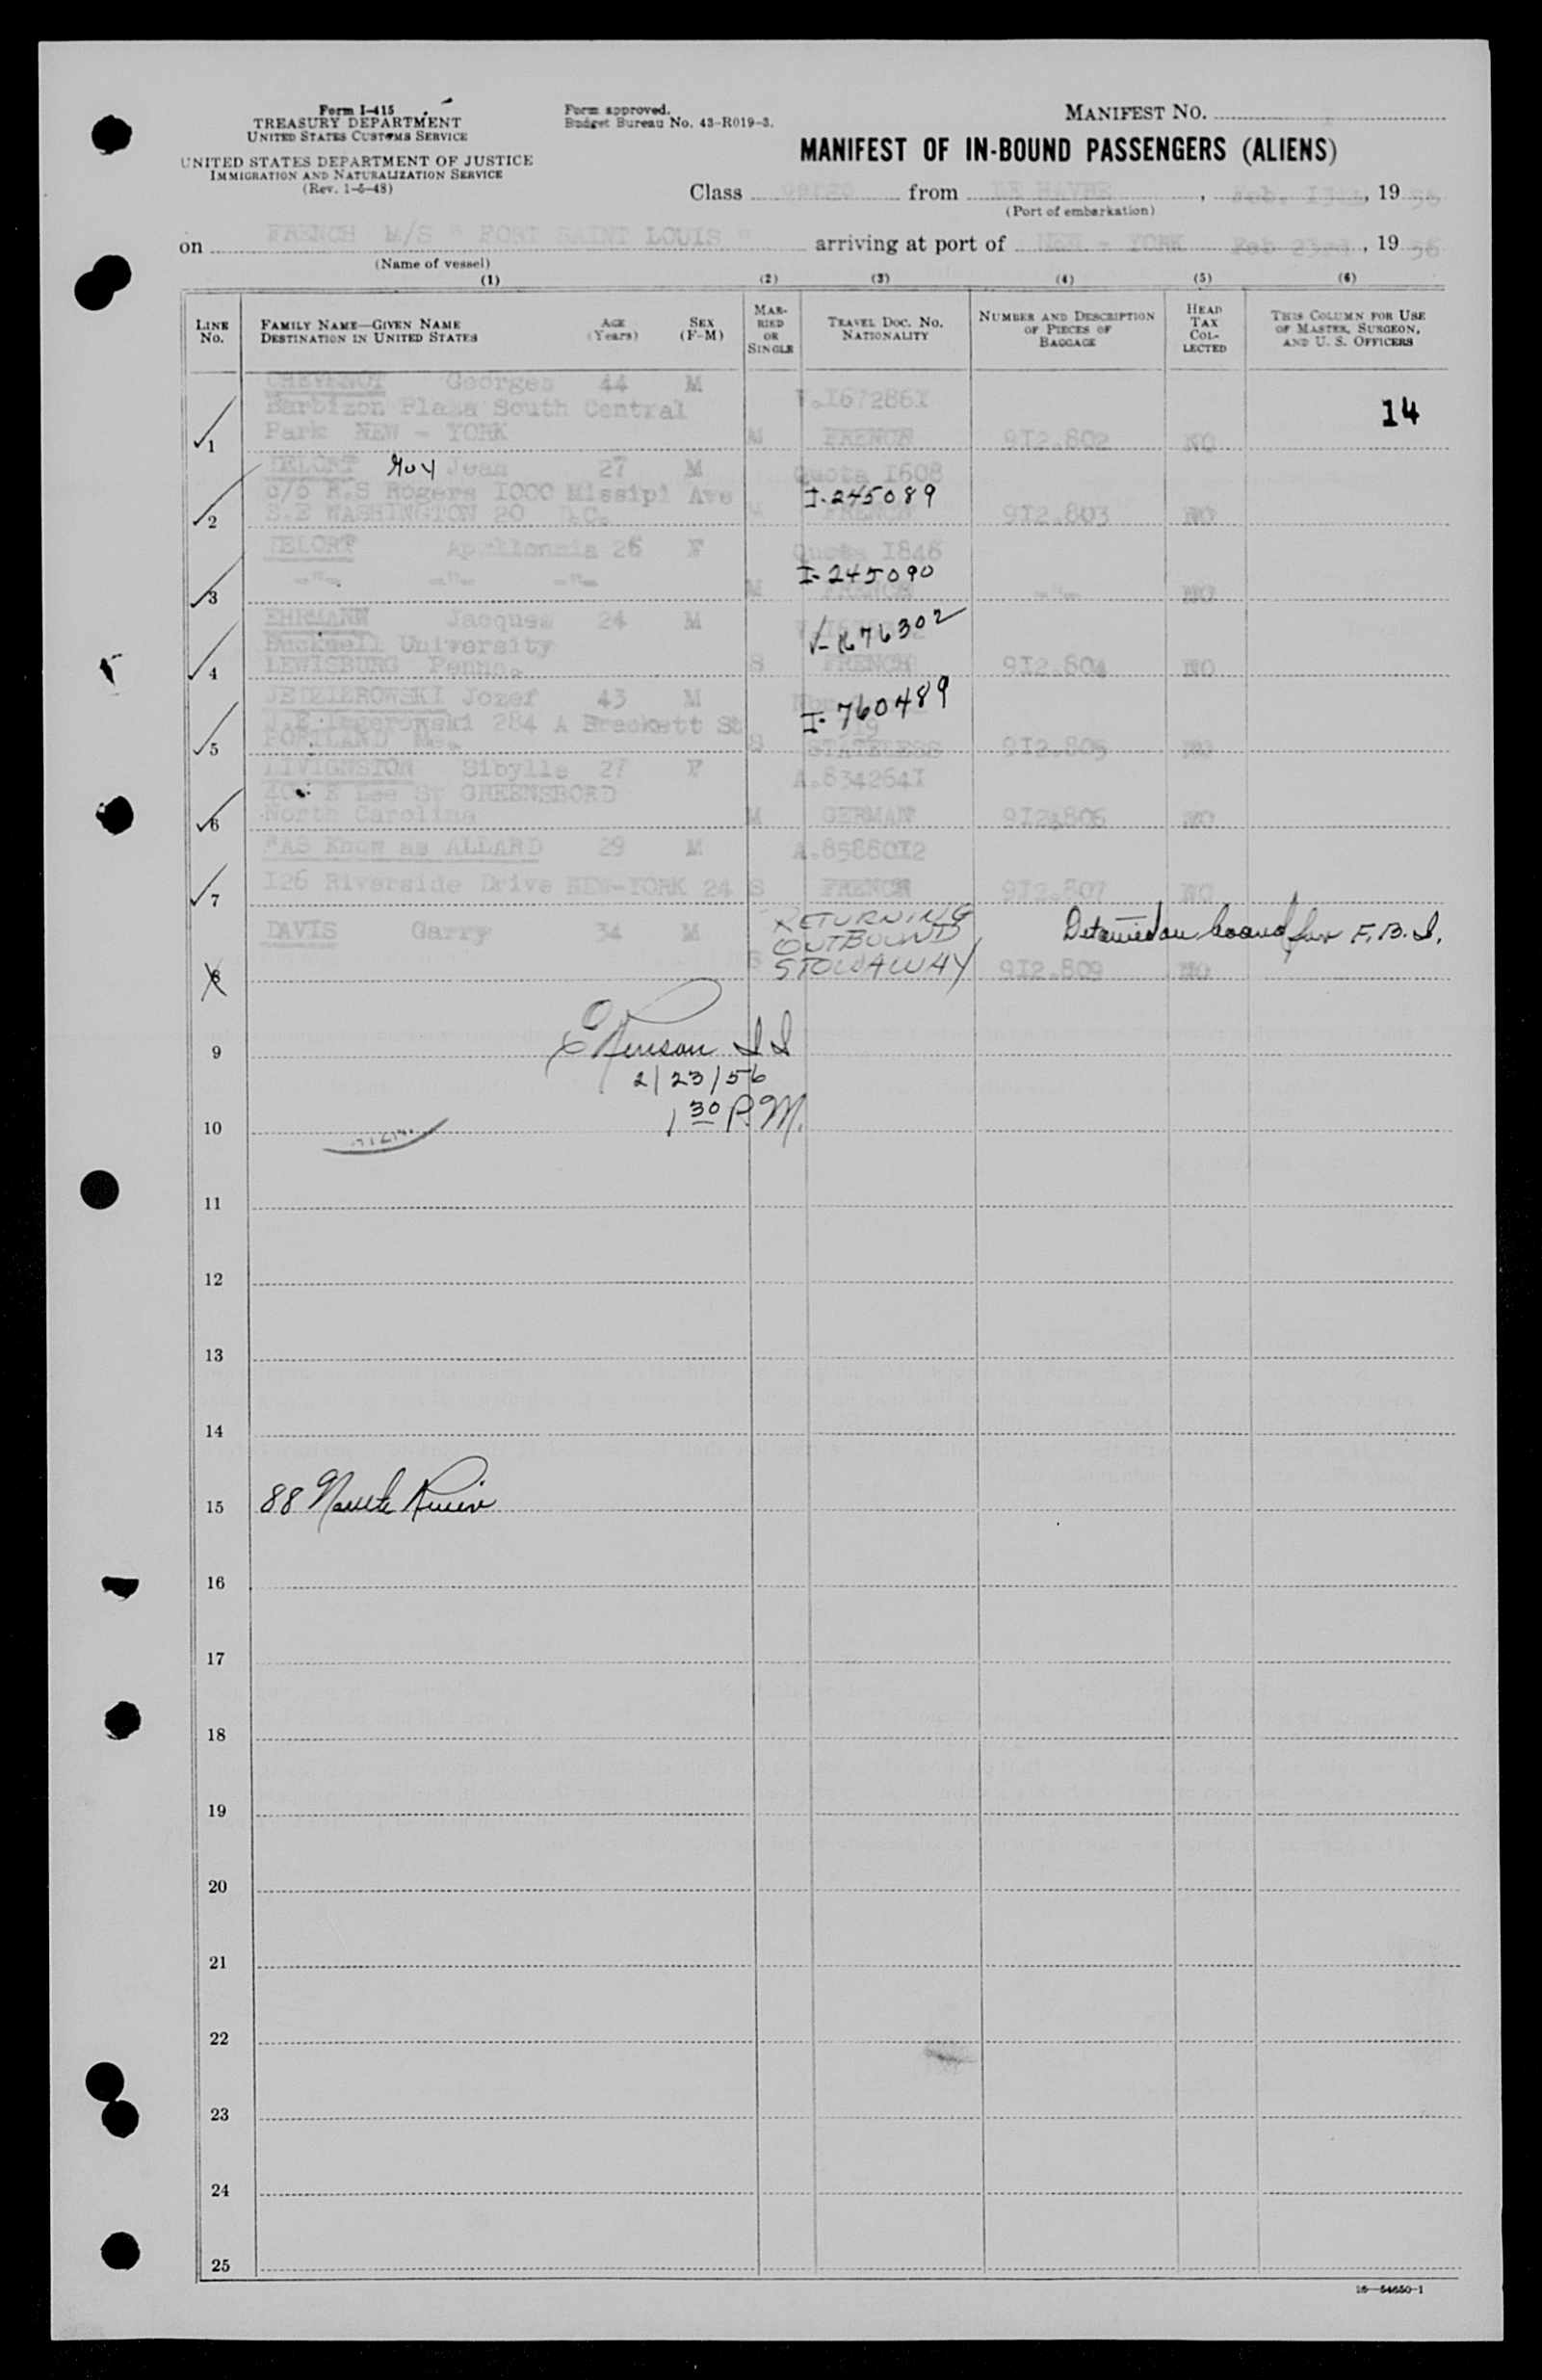 Form I-415
TREASURY DEPARTMENT
UNITED STATES CUSTOMS SERVICE
UNITED STATES DEPARTMENT OF JUSTICE
IMMIGRATION AND NATURALIZATION SERVICE
(Rev. 1-5-48)
Form approved.
Budget Bureau No. 43-R019-3.
MANIFEST NO.
MANIFEST OF IN-BOUND PASSENGERS (ALIENS)
Class from LE HAVRE, Feb. 13th, 19 56
(Port of embarkation)
on FRENCH M/S " FORT SAINT LOUIS " arriving at port of NEW - YORK Feb 23rd, 19 56
(Name of vessel)
(1) (2) (3) (4) (5) (6)
LINE No. FAMILY NAME—GIVEN NAME DESTINATION IN UNITED STATES AGE (Years) SEX (F-M) MARRIED OR SINGLE TRAVEL DOC. NO. NATIONALITY NUMBER AND DESCRIPTION OF PIECES OF BAGGAGE HEAD TAX COLLECTED THIS COLUMN FOR USE OF MASTER, SURGEON, AND U. S. OFFICERS
CHEVENOT Georges 44 M V.I67286I
Barbizon Plaza South Central 14
1 Park NEW - YORK M FRENCH 9I2.802 NO
DELORT Guy Jean 27 M Quota I608
c/o R.S Rogers I000 Missipi Ave I-245089
2 S.E WASHINGTON 20 D.C. M FRENCH 9I2.803 NO
DELORT Apollonnia 26 F Quota I846
-"- -"- -"- I-245090
3 M FRENCH -"- NO
EHRMANN Jacques 24 M
Bucknell University V-1676302
4 LEWISBURG Penna. S FRENCH 9I2.804 NO
JEDZIEROWSKI Jozef 43 M
284 A Brackett St I-760489
5 PORTLAND Me. S STATELESS 9I2.805 NO
LIVIGNSTON Sibylle 27 F A.834264I
E Lee St GREENSBORD
6 North Carolina M GERMAN 9I2.806 NO
FAS Know as ALLARD 29 M A.85880I2
7 I26 Riverside Drive NEW-YORK 24 S FRENCH 9I2.807 NO
DAVIS Garry 34 M RETURNING OUTBOUND STOWAWAY Detained on board for F.B.I.
8 S 9I2.809 NO
9 I I
2/23/56
10 1 30 P.M.
11
12
13
14
15 88 North River
16
17
18
19
20
21
22
23
24
25
16—54650-1